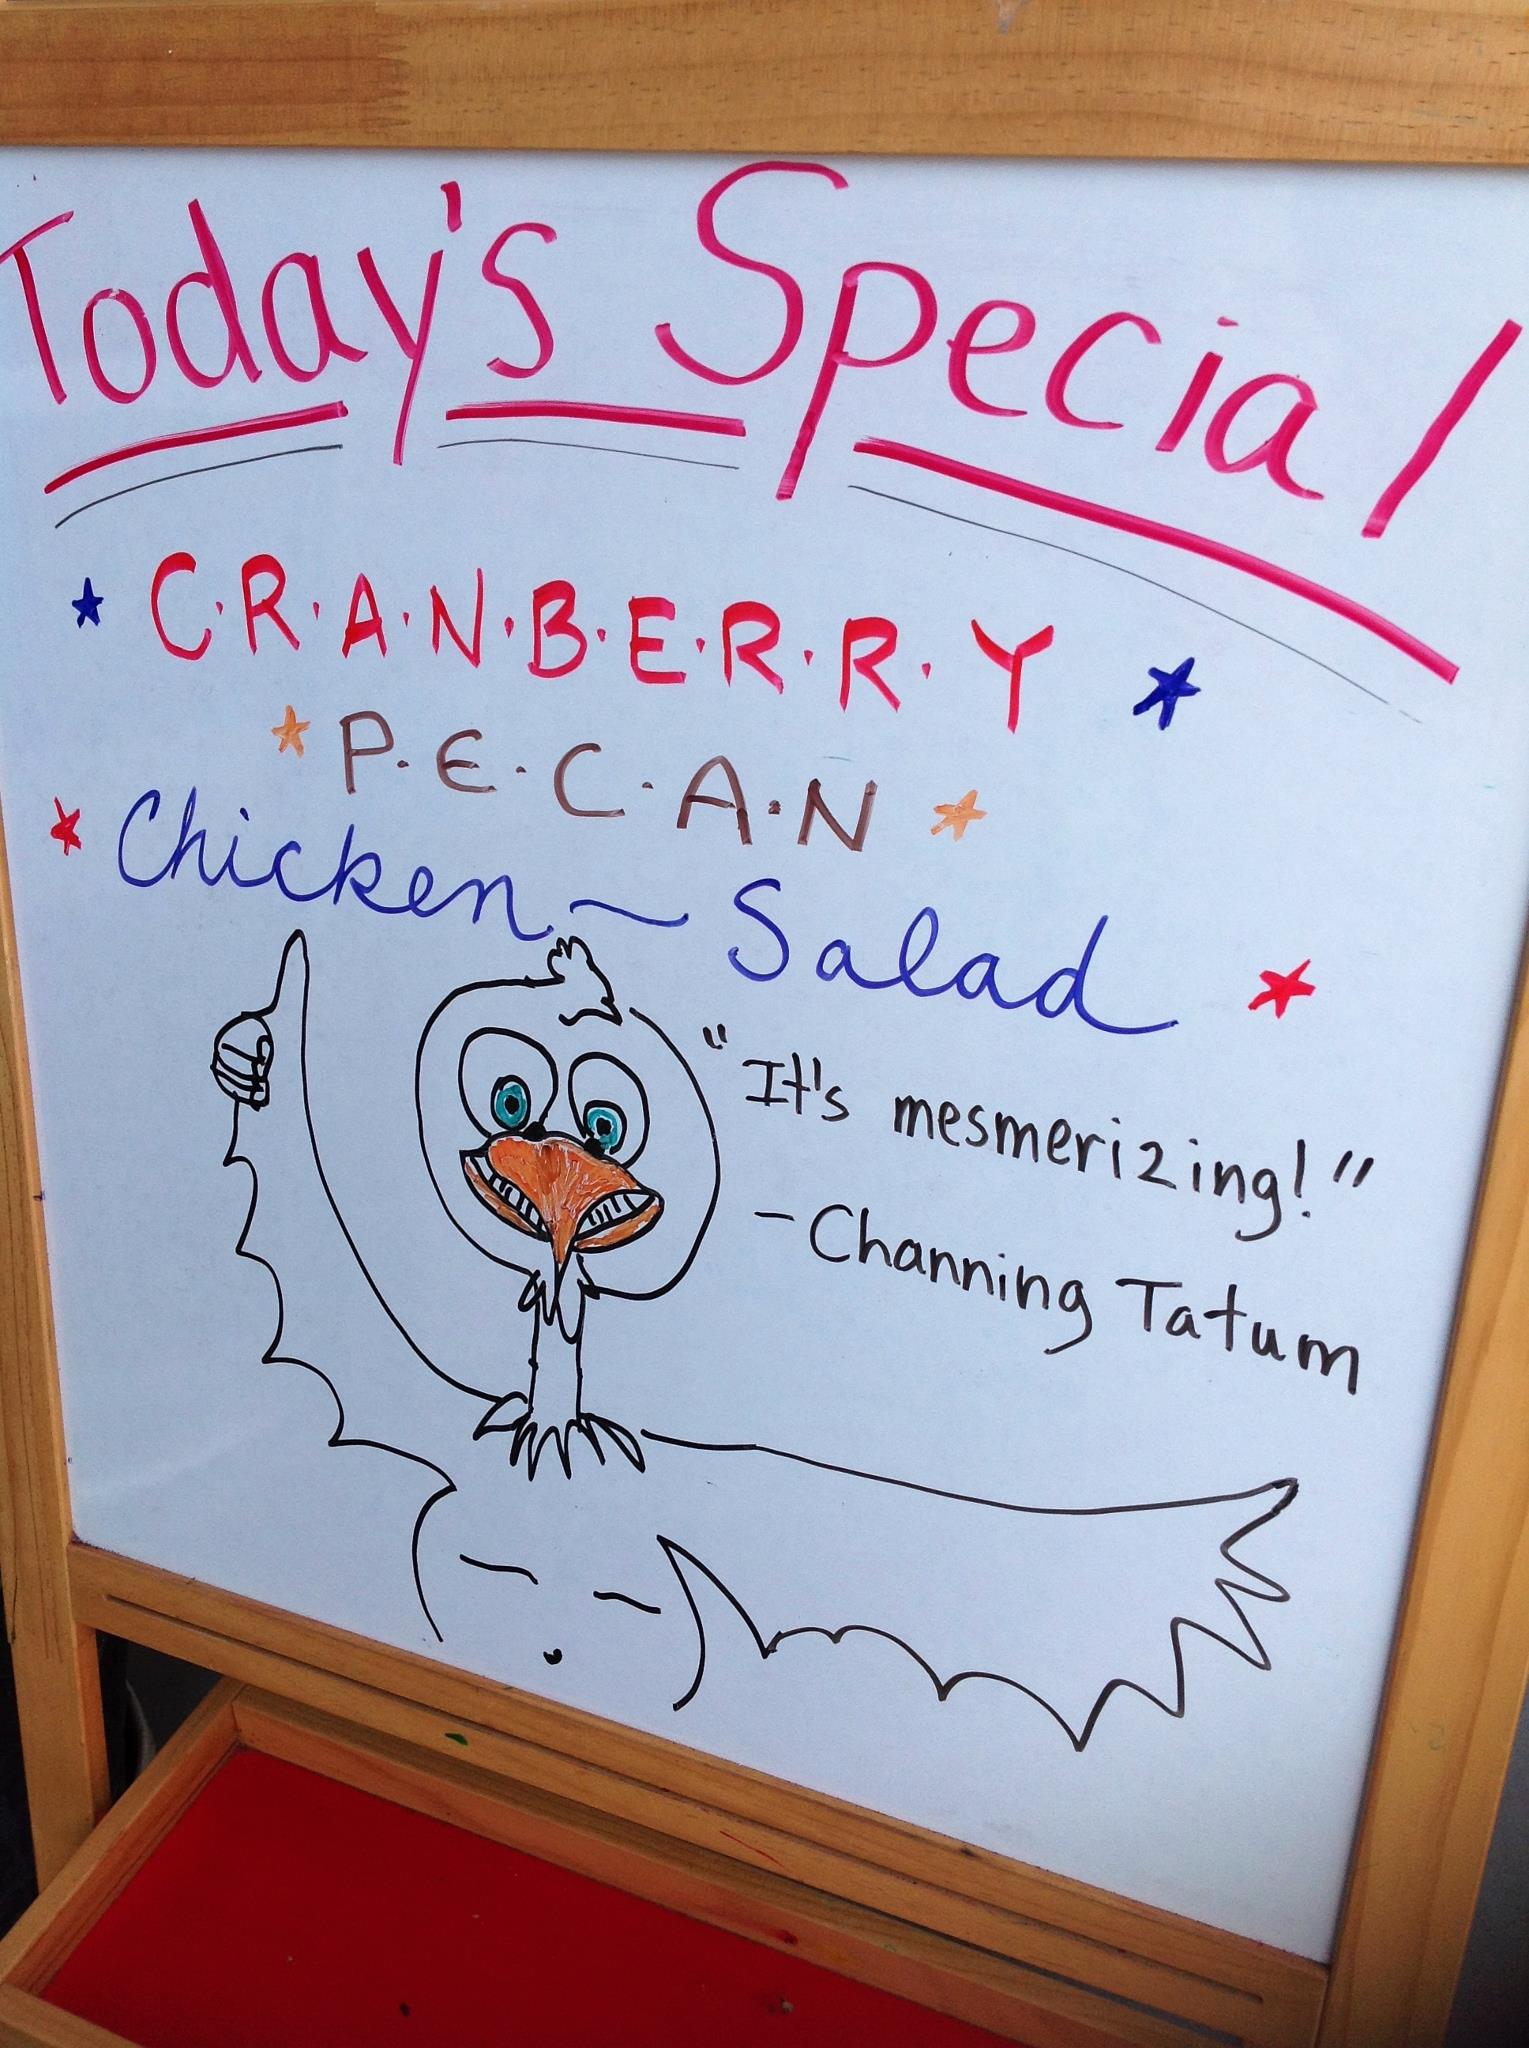 Today's Special
C.R.A.N.B.E.R.R.Y
P.E.C.A.N
Chicken~Salad
"It's mesmerizing!"
-Channing Tatum